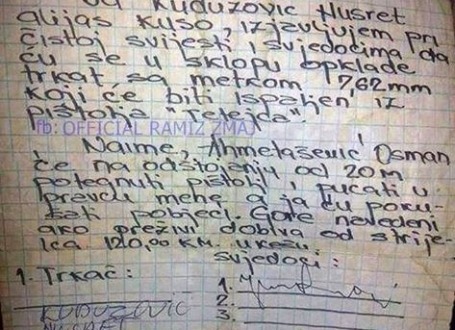 Ja Kuduzović Nusret
alijas Kuso, izjavljujem pri
čistoj svijesti i svjedocima da
ću se u sklopu opklade
trkat sa metkom 7,62mm
koji će biti ispaljen iz
pištolja "Tetejca"
fb: OFFICIAL RAMIZ ZMAJ
Naime, Ahmetašević Osman
će na odstojanju od 20m
potegnuti pištolj i pucati u
pravcu mene a ja ću poku-
šati pobjeći. Gore navedeni
ako preživi dobiva od strije-
lca 120,00 KM. u kešu
svjedoci:
1. Trkač:
1.
2.
3.
KUDUZOVIĆ
NUSRET